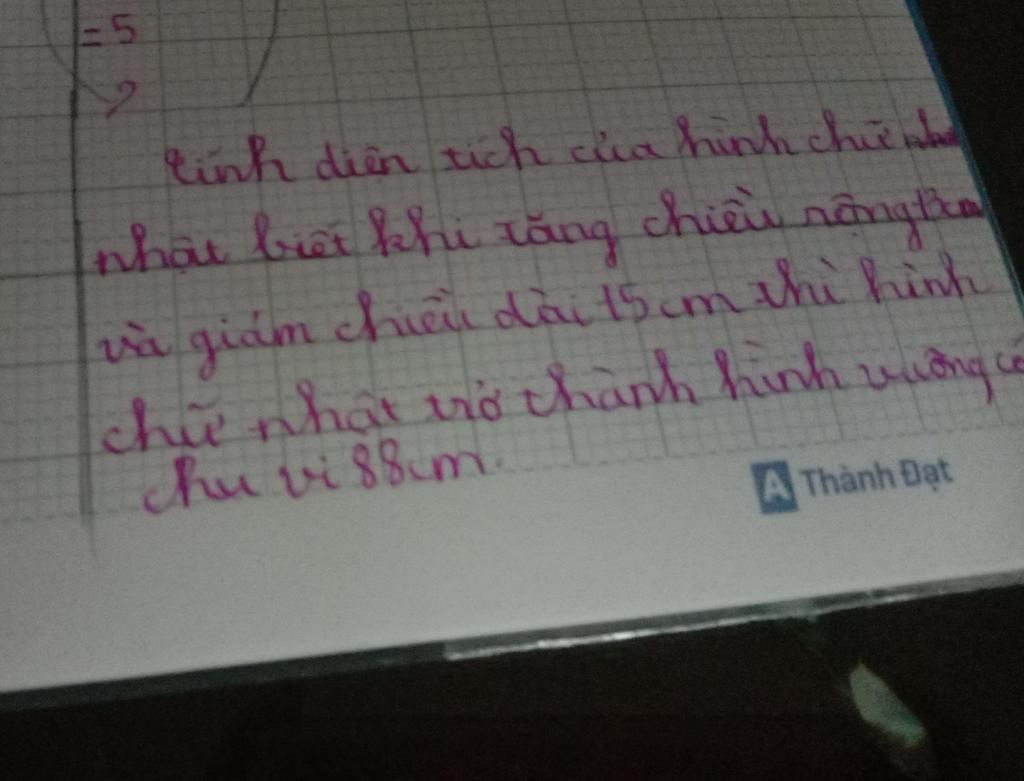 = 5
?
tính diện tích của hình chữ
nhật biết khi tăng chiều rộng
và giảm chiều dài 15cm thì hình
chữ nhật trở thành hình vuông có
chu vi 88cm.
A Thành Đạt